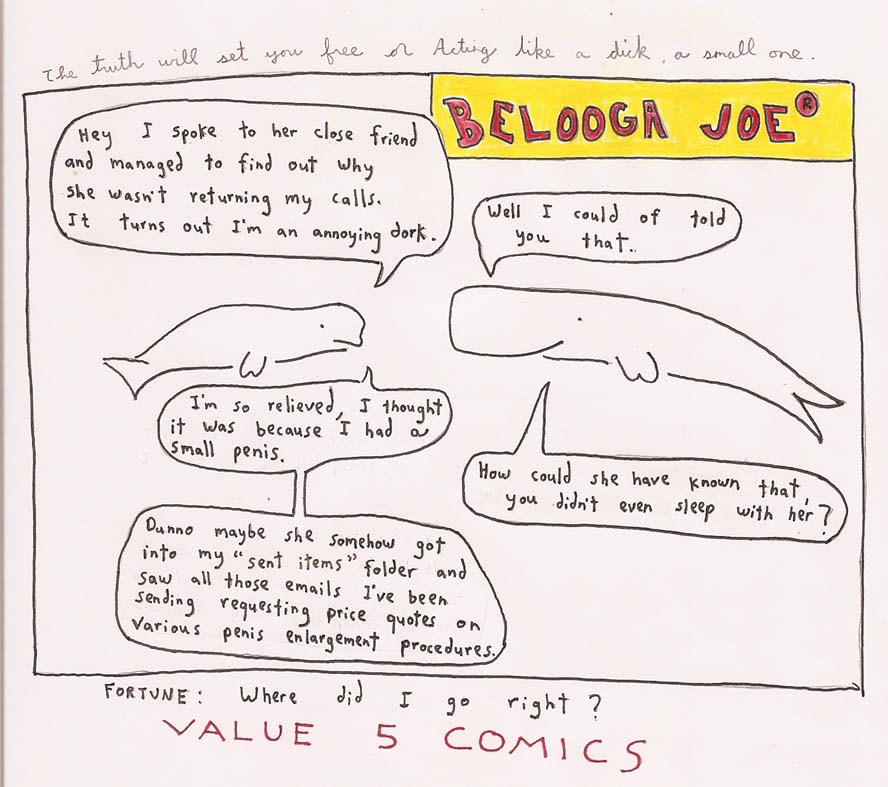 The truth will set you free or Acting like a dick, a small one.
BELOOGA JOE®
Hey I spoke to her close friend
and managed to find out why
she wasn't returning my calls.
It turns out I'm an annoying dork.
Well I could of told
you that..
I'm so relieved, I thought
it was because I had a
small penis.
How could she have known that,
you didn't even sleep with her?
Dunno maybe she somehow got
into my "sent items" folder and
saw all those emails I've been
sending requesting price quotes on
various penis enlargement procedures.
FORTUNE: Where did I go right?
VALUE 5 COMICS